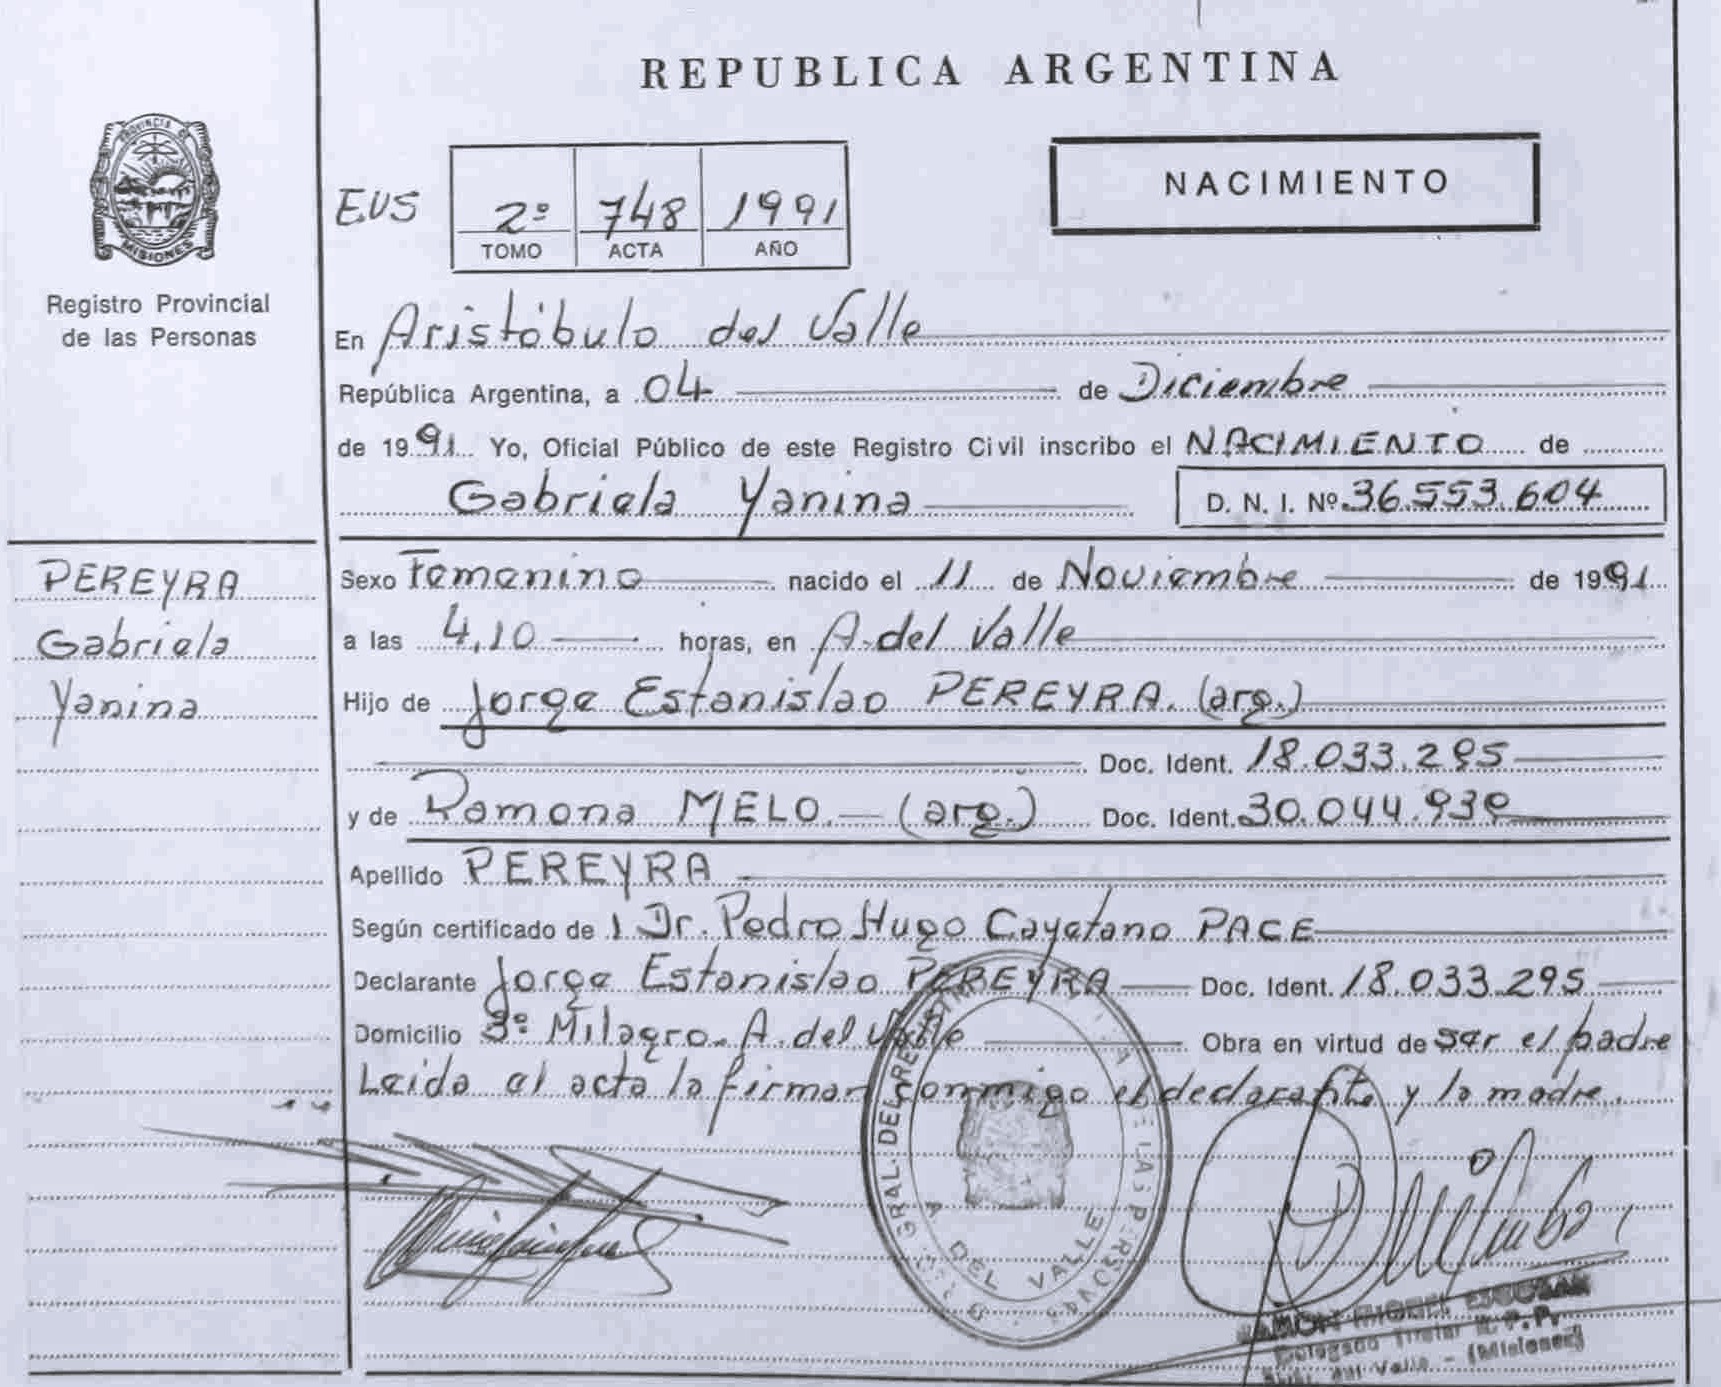 REPUBLICA ARGENTINA
PROVINCIA DE
MISIONES
Registro Provincial
de las Personas
EUS
2º 748 1991
TOMO ACTA AÑO
NACIMIENTO
En Aristóbulo del Valle
República Argentina, a 04 de Diciembre
de 1991 Yo, Oficial Público de este Registro Civil inscribo el NACIMIENTO de
Gabriela Yanina D. N. I. Nº 36.553.604
PEREYRA
Gabriela
Yanina
Sexo Femenino nacido el 11 de Noviembre de 1991
a las 4,10 horas, en A. del Valle
Hijo de Jorge Estanislao PEREYRA. (arg.)
Doc. Ident. 18.033.295
y de Ramona MELO. (arg.) Doc. Ident. 30.044.939
Apellido PEREYRA
Según certificado de l Dr. Pedro Hugo Cayetano PACE
Declarante Jorge Estanislao PEREYRA Doc. Ident. 18.033.295
Domicilio Bº Milagro. A. del Valle Obra en virtud de ser el padre
Leida el acta la firman conmigo el declarante y la madre.
GRAL. DEL REGISTRO DE LAS PERSONAS
A DEL VALLE
RAMON MIGUEL
Delegado Titular R.P.P.
del Valle - (Misiones)